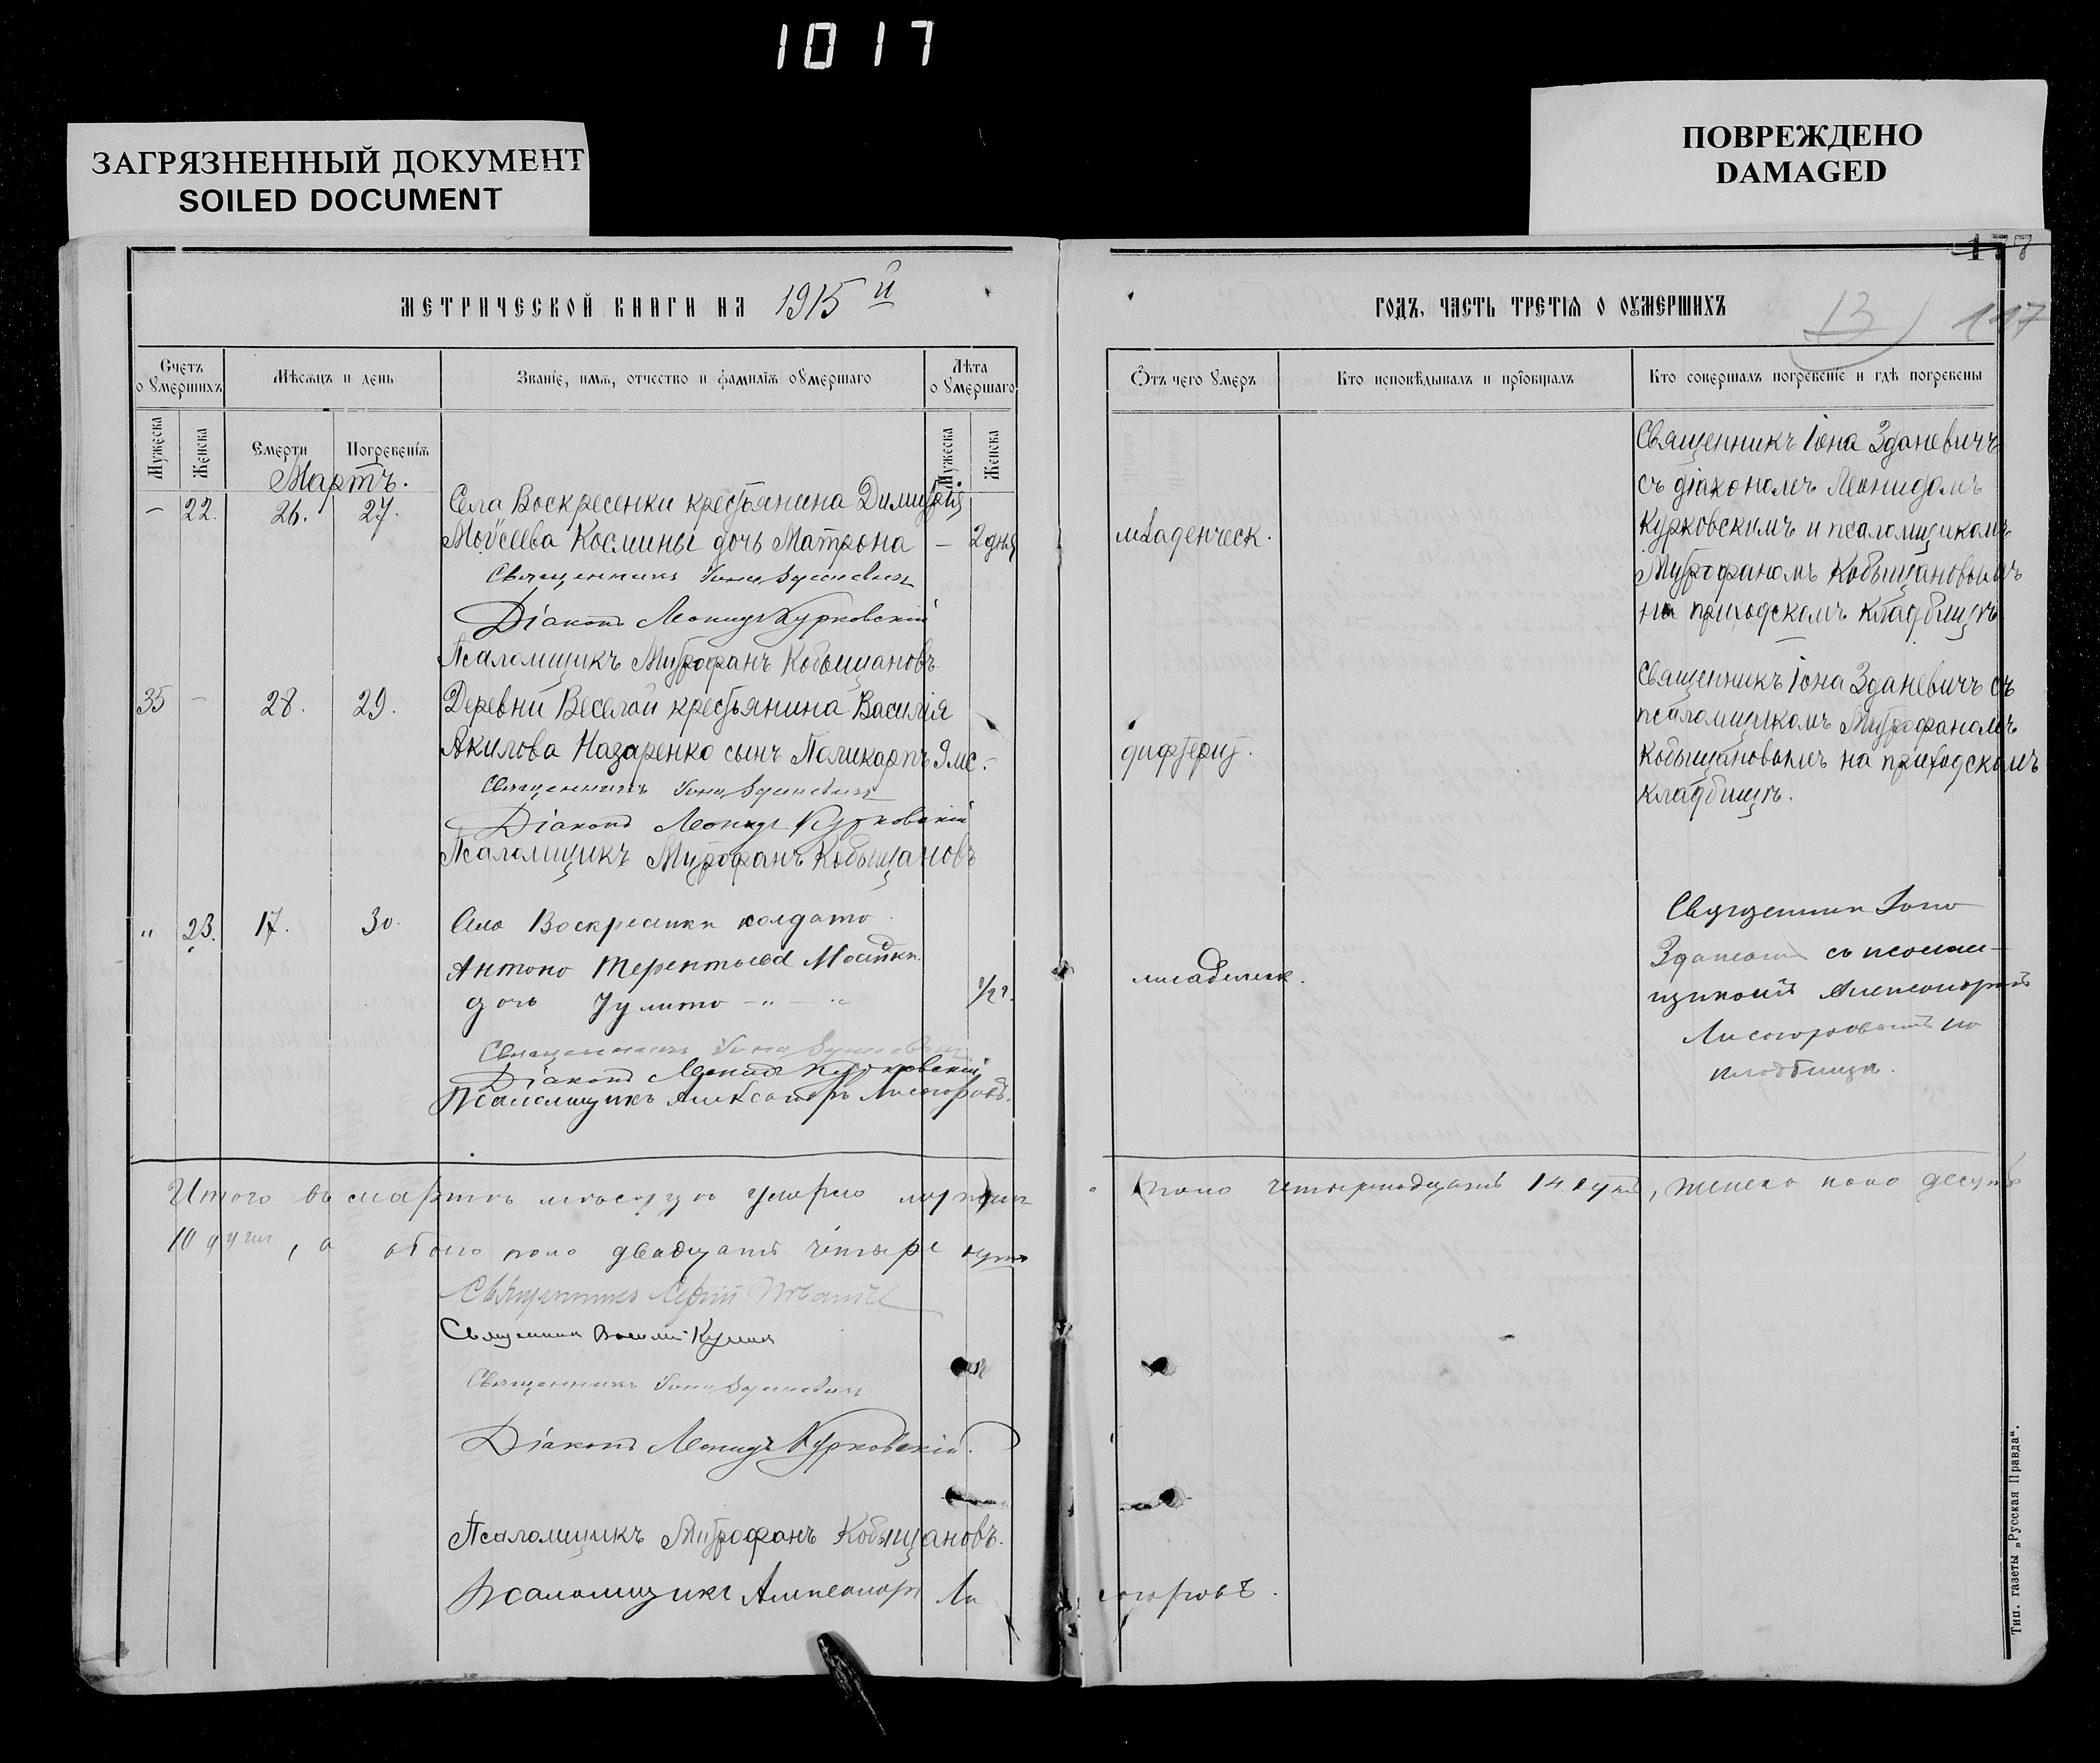 1017
ЗАГРЯЗНЕННЫЙ ДОКУМЕНТ
SOILED DOCUMENT
ПОВРЕЖДЕНО
DAMAGED
МЕТРИЧЕСКОЙ КНИГИ НА 1915 й
Счетъ
о ѹмершихъ
Мѣсяцъ и день
Званіе, имя, отчество и фамилія ѹмершаго
Лѣта
ѹмершаго
Мужеска
Женска
Смерти
Погребенія
Мужеска
Женска
Мартъ.
– 22. 26. 27. Села Воскресенки крестьянина Димитрія
Моѵсеева Космины дочь Матрона – 2 дня
Священникъ Іона Зданевичъ
Діаконъ Леонидъ Курковскій
Псаломщикъ Митрофанъ Кобыщановъ.
35 – 28. 29. Деревни Веселой крестьянина Василія
Акилова Назаренко сынъ Поликарпъ 9 мс. –
Священникъ Іона Зданевичъ
Діаконъ Леонидъ Курковскій
Псаломщикъ Митрофанъ Кобыщановъ
" 23. 17. 30. Села Воскресенки солдата
Антона Терентьева
дочь Іулита – " – " 1/2 г.
Священникъ Іона Зданевичъ
Діаконъ Леонидъ Курковскій
Псаломщикъ Александръ Лисогоровъ.
Итого въ мартѣ мѣсяцѣ умерло мужеск
10 душъ, а обоего пола двадцать четыре души
Священникъ
Священникъ
Священникъ Іона Зданевичъ
Діаконъ Леонидъ Курковскій.
Псаломщикъ Митрофанъ Кобыщановъ.
Псаломщикъ Александръ Ли
177
ГОДЪ, ЧАСТЬ ТРЕТІЯ О ОУМЕРШИХЪ
13
117
Ѿтъ чего ѹмеръ
Кто исповѣдывалъ и пріобщалъ
Кто совершалъ погребеніе и гдѣ погребены
младенческ.
Священникъ Іона Зданевичъ
съ діакономъ Леонидомъ
Курковскимъ и псаломщикомъ
Митрофаномъ Кобыщановымъ
на приходскомъ кладбищѣ
дифтерит.
Священникъ Іона Зданевичъ съ
псаломщикомъ Митрофаномъ
Кобыщановымъ на приходскомъ
кладбищѣ.
младенческ.
Священникъ Іона
Зданевичъ съ псалом-
щикомъ Александромъ
Лисогоровымъ на
кладбищѣ.
пола четырнадцать 14 душъ, женска пола десять
согоровъ.
Тип. газеты „Русская Правда“.